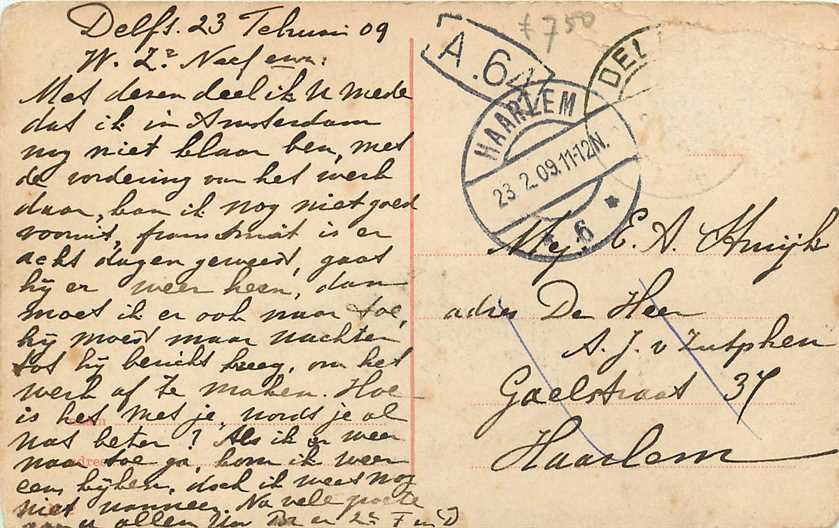 Delft. 23 Februari 09
W. Zr Neef
Met dezen deel ik U mede
dat ik in Amsterdam
nog niet klaar ben, met
de vordering van het werk
daar, kan ik nog niet goed
vooruit, is er
acht dagen geweest, gaat
hij er weer heen, dan
moet ik er ook naar toe,
hij moest maar wachten
tot hij bericht kreeg, om het
werk af te maken. Hoe
is het met je, wordt je al
wat beter? Als ik er weer
naar toe ga, kom ik weer
eens kijken, doch ik weet nog
niet wanneer. Na vele groete
aan u allen Uw Br en Zr F en D
adres
£ 750
A.64
DEL
HAARLEM
23.2.09.11-12N.
* 6 *
Mej E. A. Kruijk
adres De Heer
A. J. v Zutphen
Gaelstraat 37
Haarlem